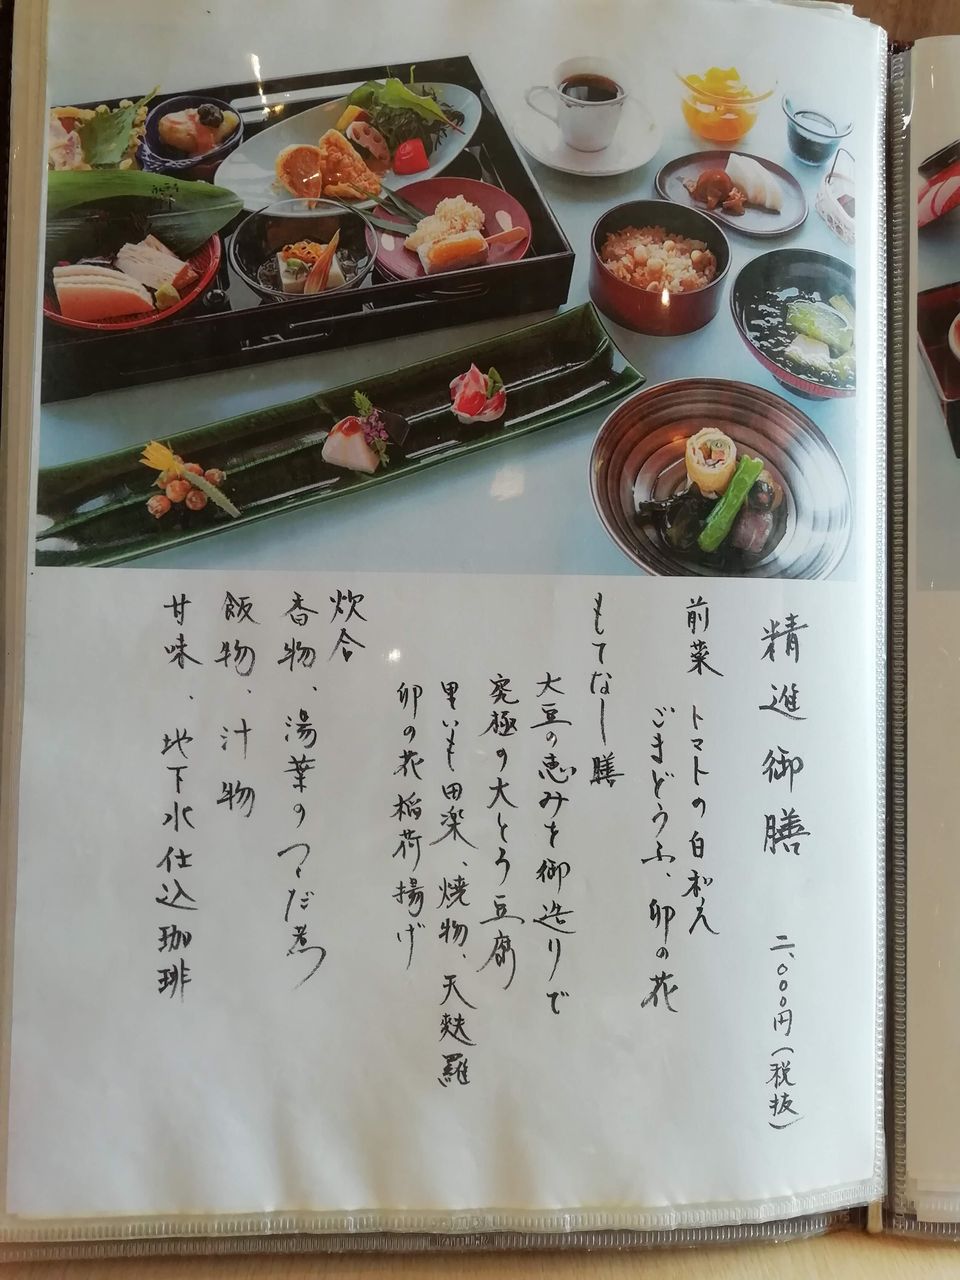 精進御膳 二、〇〇〇円(税抜)
前菜 トマトの白和え
ごまどうふ、卯の花
もてなし膳
大豆の恵みを御造りで
究極の大とろ豆腐
里いも田楽、焼物、天麩羅
卯の花稲荷揚げ
炊合
香物、湯葉のつくだ煮
飯物、汁物
甘味、地下水仕込珈琲